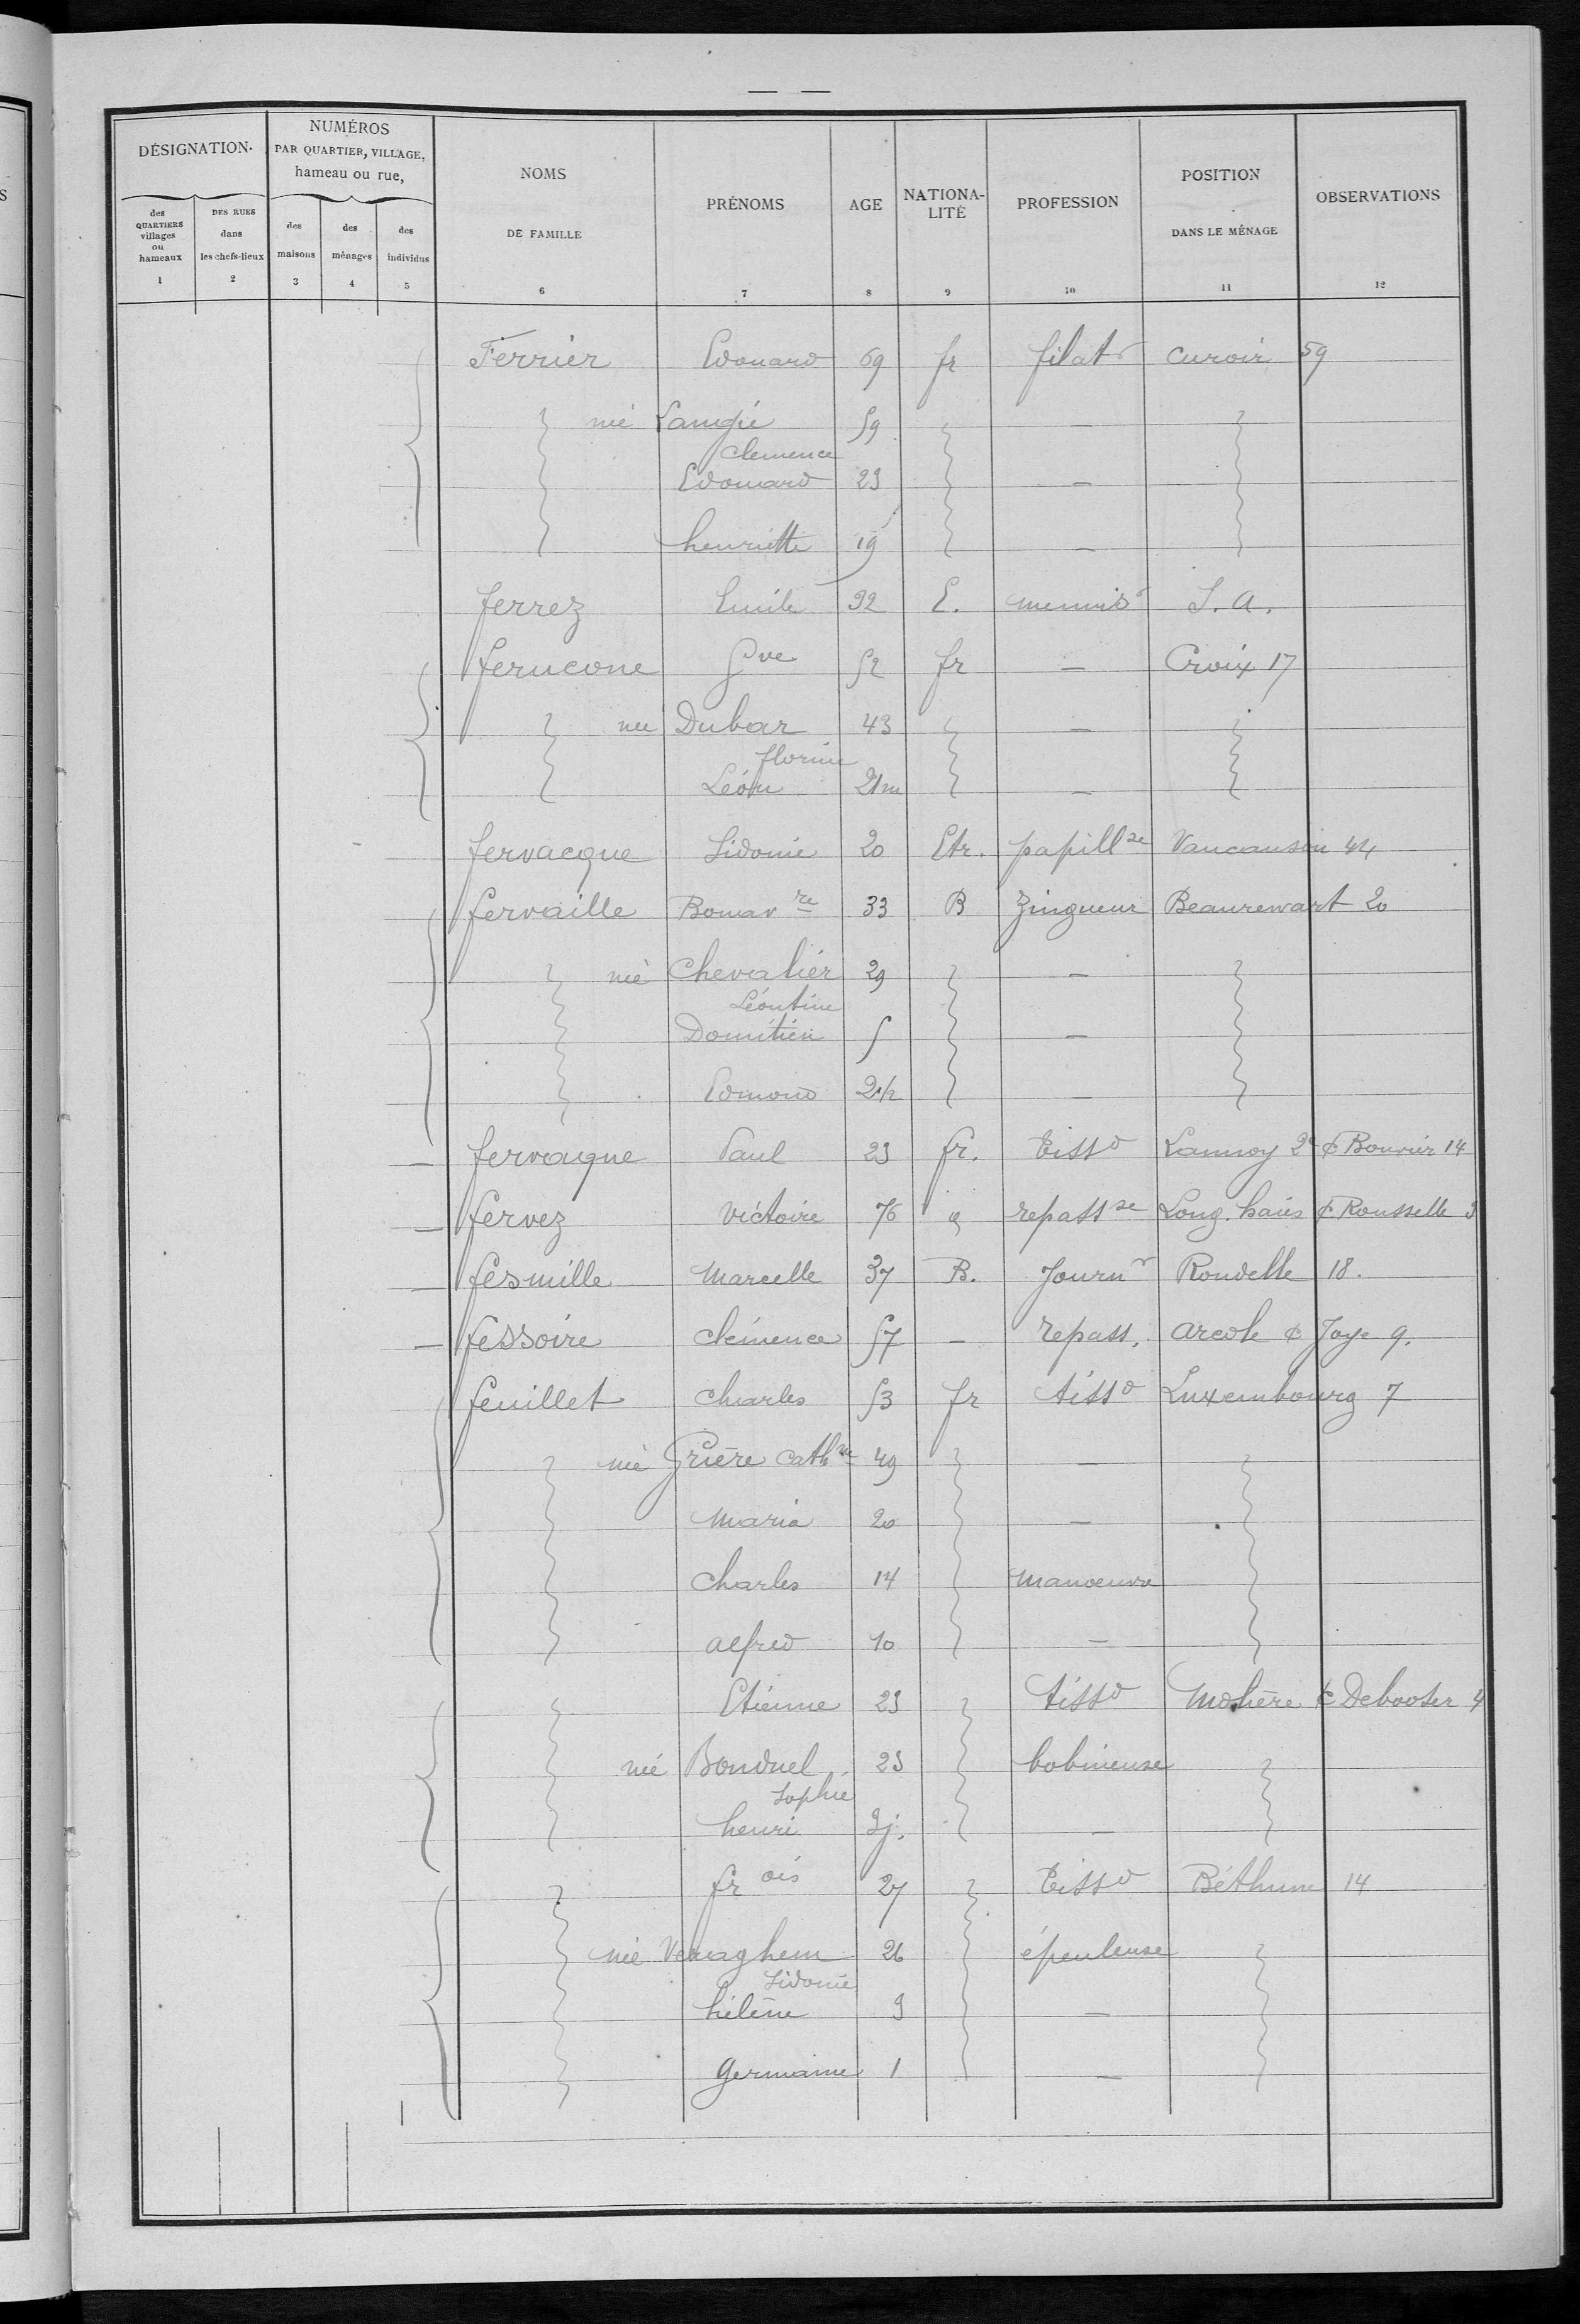 — —
DÉSIGNATION
NUMÉROS
PAR QUARTIER, VILLAGE,
hameau ou rue,
NOMS
DE FAMILLE
PRÉNOMS
AGE
NATIONA-
LITÉ
PROFESSION
POSITION
DANS LE MÉNAGE
OBSERVATIONS
des
QUARTIERS
villages
ou
hameaux
DES RUES
dans
les chefs-lieux
des
maisons
des
ménages
des
individus
1 2 3 4 5 6 7 8 9 10 11 12
Ferrier Edouard 69 fr filatr curoir 59
née 59 —
Clemence
Edouard 23 —
henriette 19 —
ferrez Emile 32 E. menuisr S. A.
ferucone Gve 52 fr — Croix 17
née Dubar 43 —
florine
Léon 21m —
fervacque Sidonie 20 Etr. papillse Vaucanson 44
fervaille Bonavre 33 B Zingueur Beaurewart 20
née Chevalier 29 —
Léontine
Domitien 5 —
Edmond 2 1/2 —
— fervaque Paul 23 fr. Tissd Lannoy 2d ¢ Bouvier 14
— fervez Victoire 76 repassse Long. haies ¢ Rousselle 3
— fesmille Marcelle 37 B. Journr Rondelle 18.
— fessoire clémence 57 — repass. arcole ¢ Joye 9.
feuillet Charles 53 fr tissd Luxembourg 7
née Grière Cathne 49 —
Maria 20 —
Charles 14 manoeuvre
alfred 10 —
Etienne 23 tissd Molière ¢ Debooser 4
née Bonduel 23 bobineuse
Sophie
henri 3j. —
frois 27 Tissd Béthune 14
née 26 épeuleuse
Sidonie
hélène 3 —
Germaine 1 —